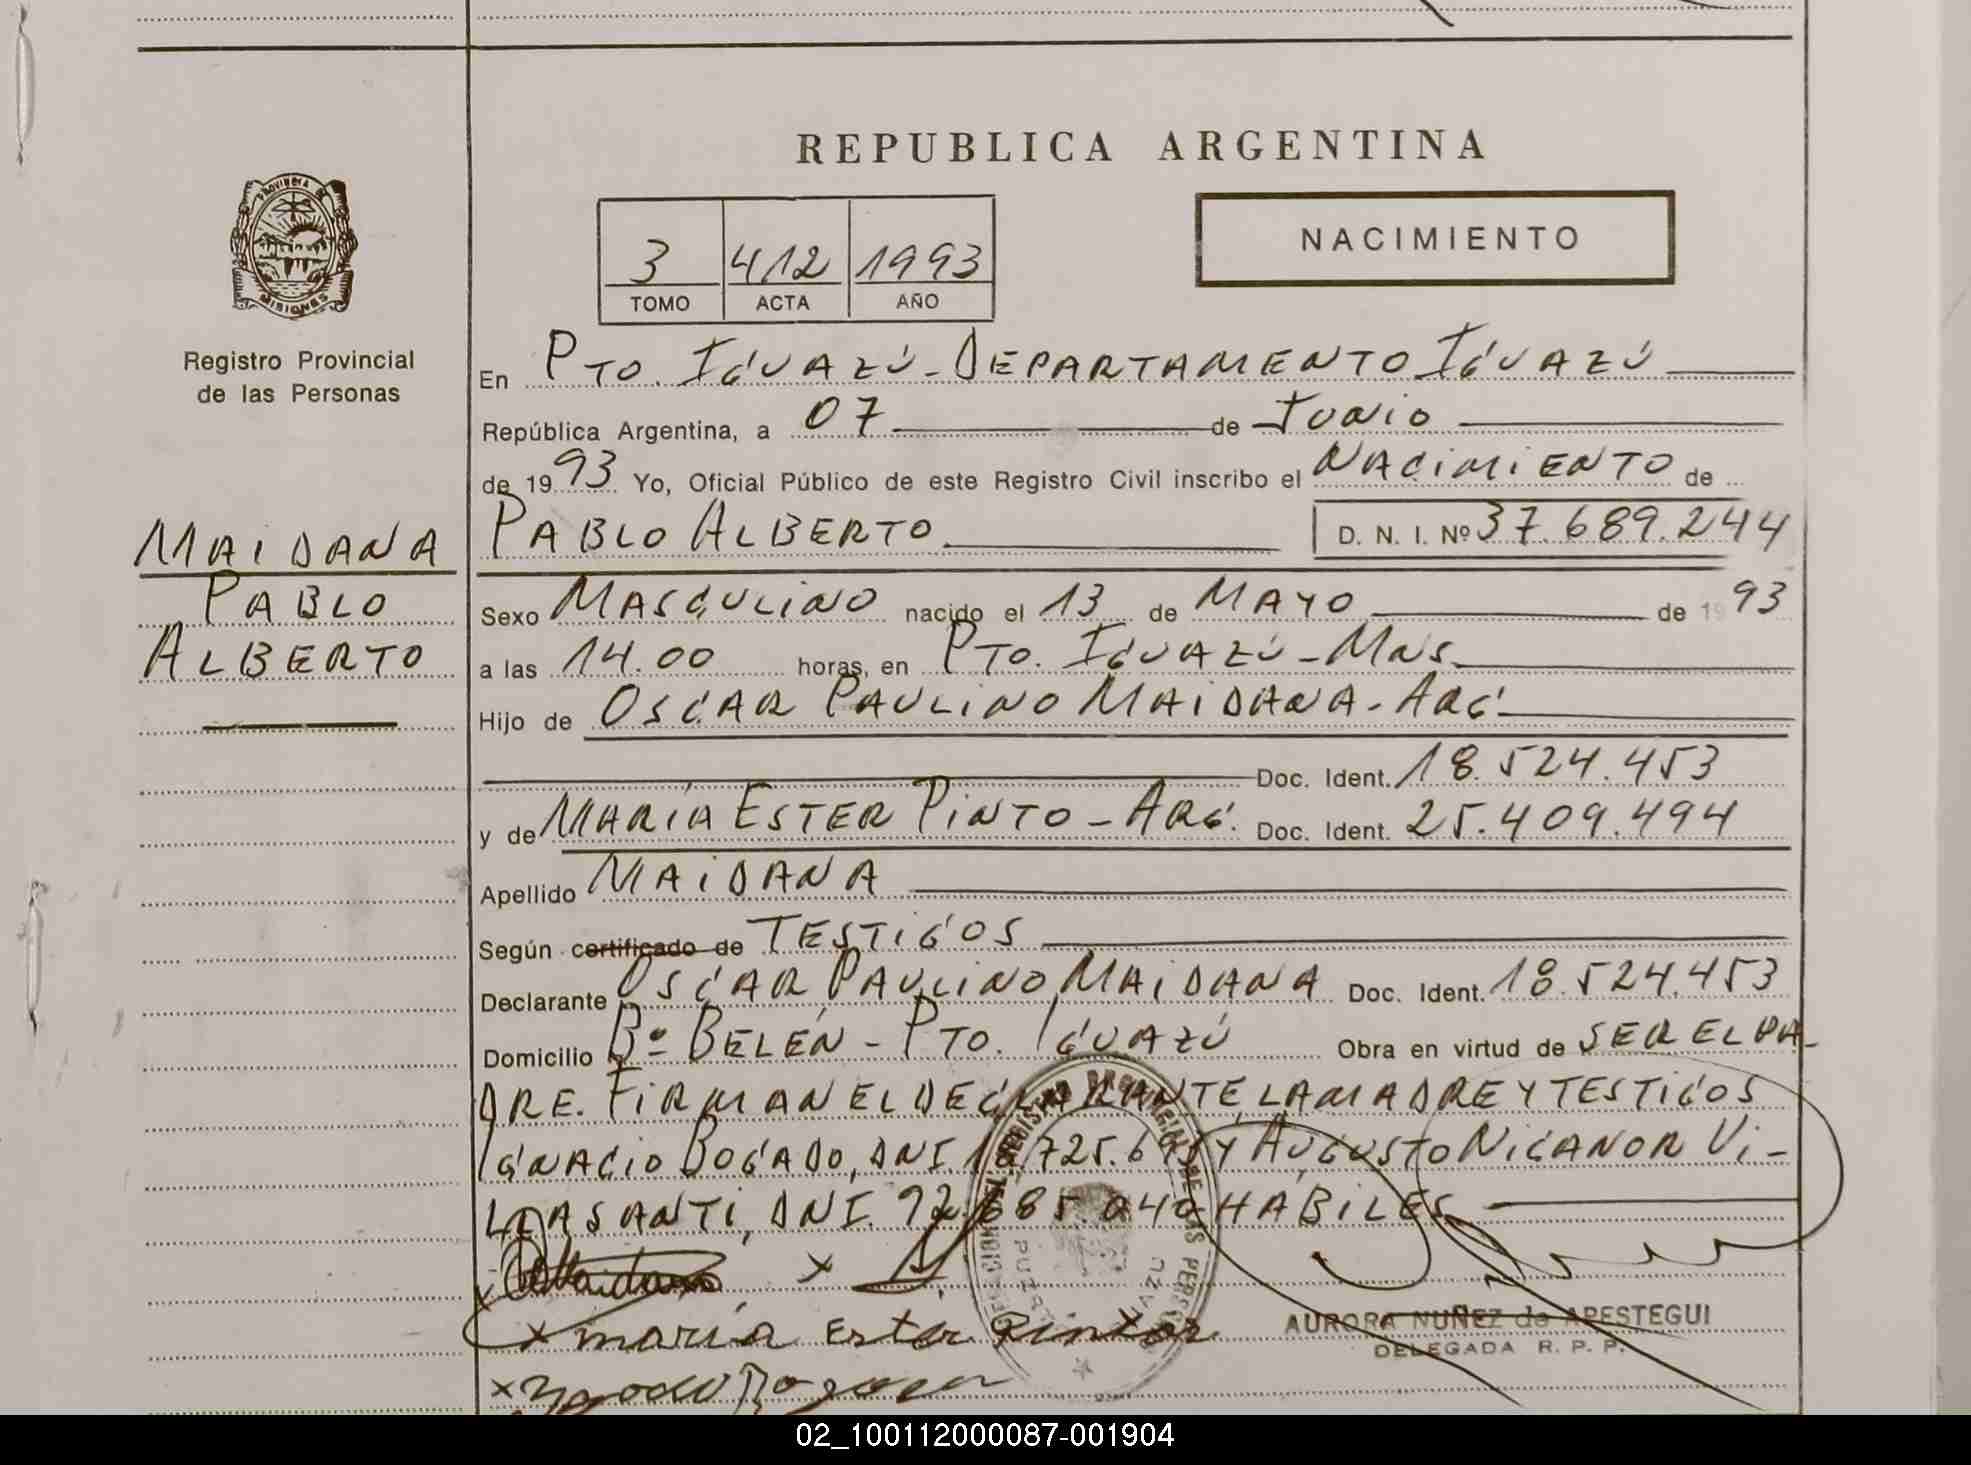 REPUBLICA ARGENTINA
PROVINCIA DE
MISIONES
3 412 1993
TOMO ACTA AÑO
NACIMIENTO
Registro Provincial
de las Personas
En PTO. IGUAZÚ - DEPARTAMENTO IGUAZÚ
República Argentina, a 07 de JUNIO
de 1993 Yo, Oficial Público de este Registro Civil inscribo el NACIMIENTO de
MAIDANA
PABLO
ALBERTO
PABLO ALBERTO D. N. I. Nº 37.689.244
Sexo MASCULINO nacido el 13 de MAYO de 1993
a las 14.00 horas, en PTO. IGUAZÚ - MNS.
Hijo de OSCAR PAULINO MAIDANA - ARG.
Doc. Ident. 18.524.453
y de MARÍA ESTER PINTO - ARG. Doc. Ident. 25.409.494
Apellido MAIDANA
Según certificado de TESTIGOS
Declarante OSCAR PAULINO MAIDANA Doc. Ident. 18.524.453
Domicilio Bº BELÉN - PTO. IGUAZÚ Obra en virtud de SER EL PA-
DRE. FIRMAN EL DECLARANTE, LA MADRE Y TESTIGOS
IGNACIO BOGADO, DNI 18.725.6 Y AUGUSTO NICANOR VI-
LLASANTI, DNI. 92.685.040 HÁBILES
x Maidana x
x maria Ester Pintos
x
AURORA NUÑEZ de ARESTEGUI
DELEGADA R. P. P.
02_100112000087-001904